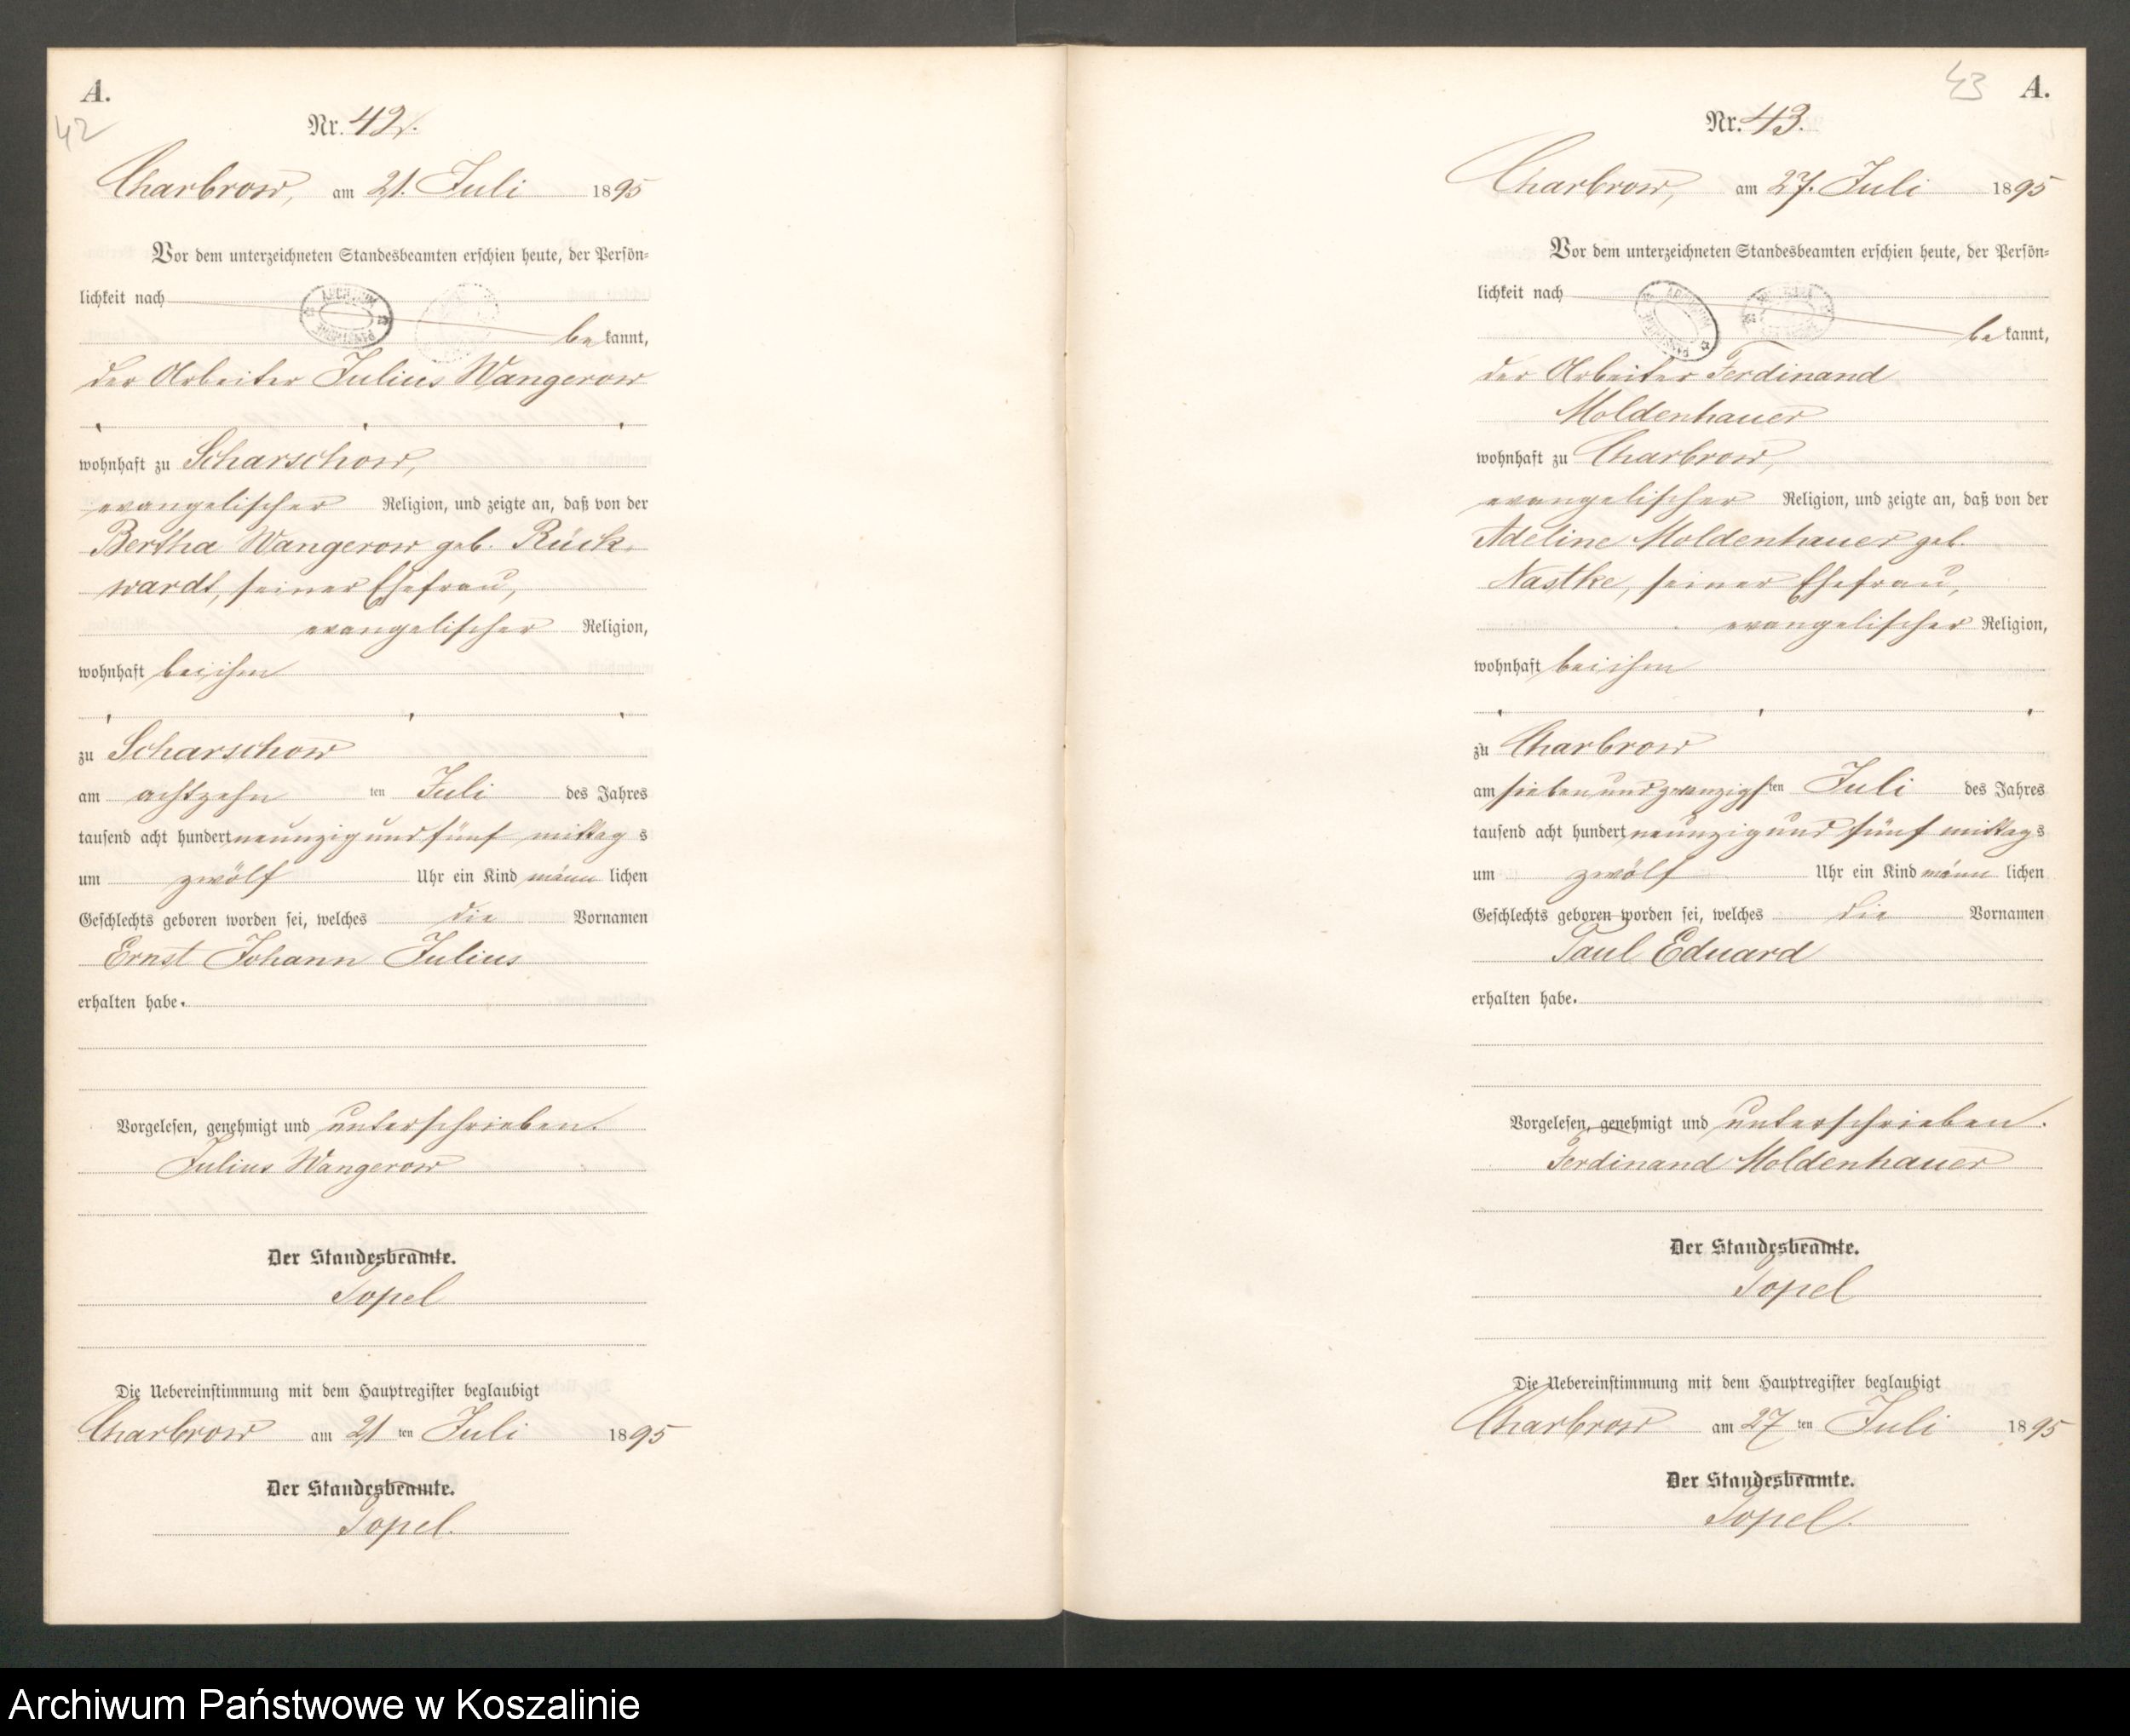 A.
42
Nr. 42.
Charbrow, am 21. Juli 1895
Vor dem unterzeichneten Standesbeamten erschien heute, der Persön-
lichkeit nach
be kannt,
der Arbeiter Julius Wangerow
wohnhaft zu Scharschow,
evangelischer Religion, und zeigte an, daß von der
Bertha Wangerow geb. Rück-
wardt, seiner Ehefrau,
evangelischer Religion,
wohnhaft bei ihm
zu Scharschow
am achtzehn ten Juli des Jahres
tausend acht hundert neunzig und fünf mittag s
um zwölf Uhr ein Kind männ lichen
Geschlechts geboren worden sei, welches die Vornamen
Ernst Johann Julius
erhalten habe.
Vorgelesen, genehmigt und unterschrieben.
Julius Wangerow
Der Standesbeamte.
Topel
Die Uebereinstimmung mit dem Hauptregister beglaubigt
Charbrow am 21 ten Juli 1895
Der Standesbeamte.
Topel.
43 A.
Nr. 43.
Charbrow, am 27. Juli 1895
Vor dem unterzeichneten Standesbeamten erschien heute, der Persön-
lichkeit nach
be kannt,
der Arbeiter Ferdinand
Moldenhauer
wohnhaft zu Charbrow,
evangelischer Religion, und zeigte an, daß von der
Adeline Moldenhauer geb.
Nastke, seiner Ehefrau,
evangelischer Religion,
wohnhaft bei ihm
zu Charbrow
am siebenundzwanzigsten Juli des Jahres
tausend acht hundert neunzig und fünf mittags
um zwölf Uhr ein Kind männ lichen
Geschlechts geboren worden sei, welches die Vornamen
Paul Eduard
erhalten habe.
Vorgelesen, genehmigt und unterschrieben.
Ferdinand Moldenhauer
Der Standesbeamte.
Topel
Die Uebereinstimmung mit dem Hauptregister beglaubigt
Charbrow am 27 ten Juli 1895
Der Standesbeamte.
Topel.
Archiwum Państwowe w Koszalinie